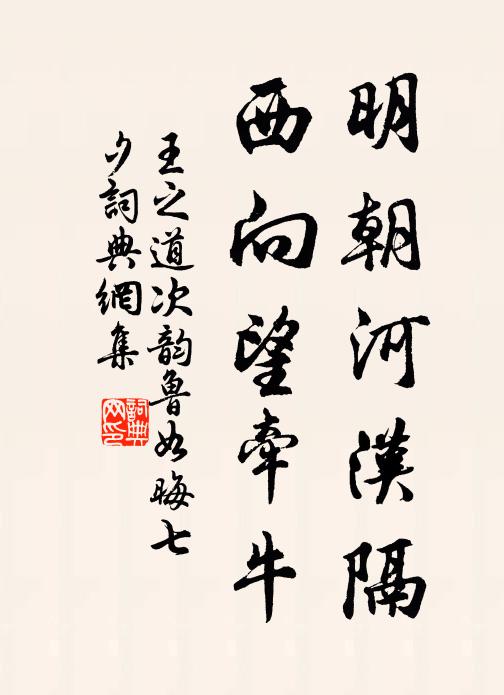 明朝河漢隔
西向望牽牛
王之道次韵魯如晦七
夕詞典網集
詞典網印